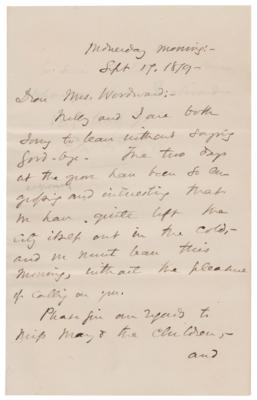 Wednesday morning:-
Sept 17. 1879-
Dear Mrs. Woodward:-
and I are both
sorry to leave without saying
Good-bye. The two days
at the grove have been so en
grossing and interesting that
we have quite left the
city itself out in the cold;-
and we must leave this
morning without the pleasure
of calling on you.
Please give our regards to
Miss May & the children;-
and